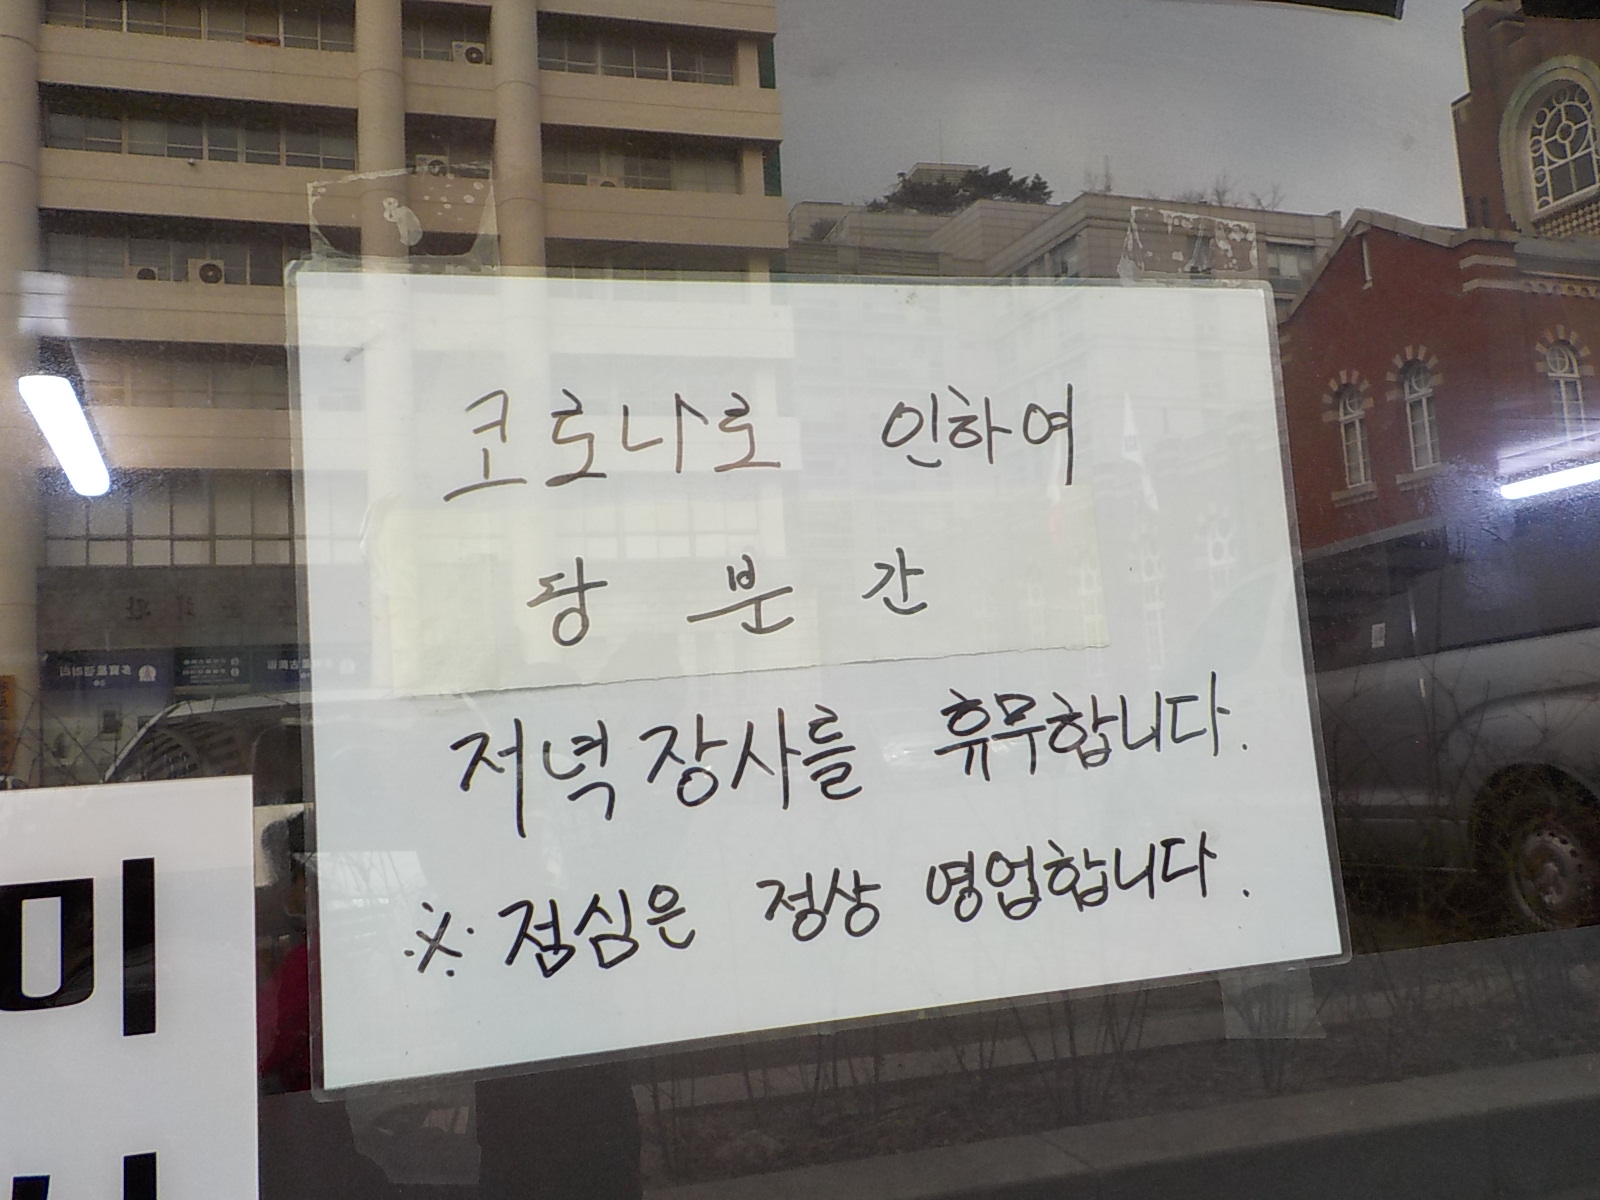 코로나로 인하여
당분간
저녁장사를 휴무합니다.
※ 점심은 정상 영업합니다.
미